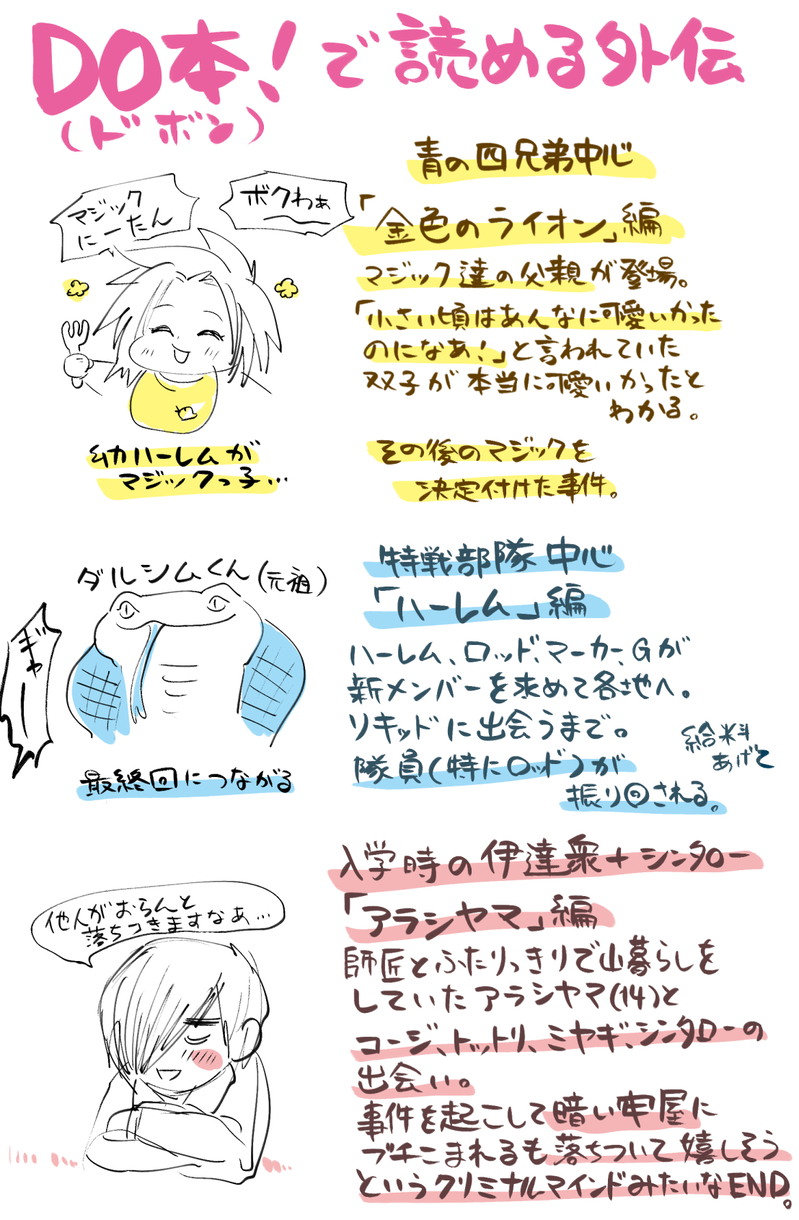 DO本!で読める外伝
(ドボン)
青の四兄弟中心
「金色のライオン」編
マジック達の父親が登場。
「小さい頃はあんなに可愛いかった
のになあ!」と言われていた
双子が本当に可愛いかったと
わかる。
その後のマジックを
決定付けた事件。
マジック
にーたん
ボクわぁ
幼ハーレムが
マジックっ子…
特戦部隊中心
「ハーレム」編
ハーレム、ロッド、マーカー、Gが
新メンバーを求めて各地へ。
リキッドに出会うまで。
隊員(特にロッド)が
振り回される。
給料
あげて
ダルシムくん(元祖)
ぎゃー
最終回につながる
入学時の伊達衆+シンタロー
「アラシヤマ」編
師匠とふたりっきりで山暮らしを
していたアラシヤマ(14)と
コージ、トットリ、ミヤギ、シンタローの
出会い。
事件を起こして暗い牢屋に
ブチこまれるも落ちついて嬉しそう
というクリミナルマインドみたいなEND。
他人がおらんと
落ちつきますなあ…